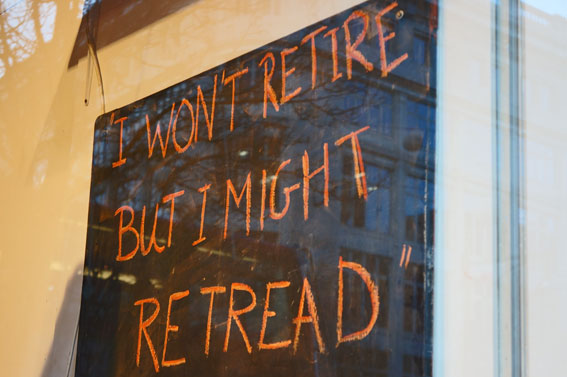 "I WON'T RETIRE
BUT I MIGHT
RETREAD"